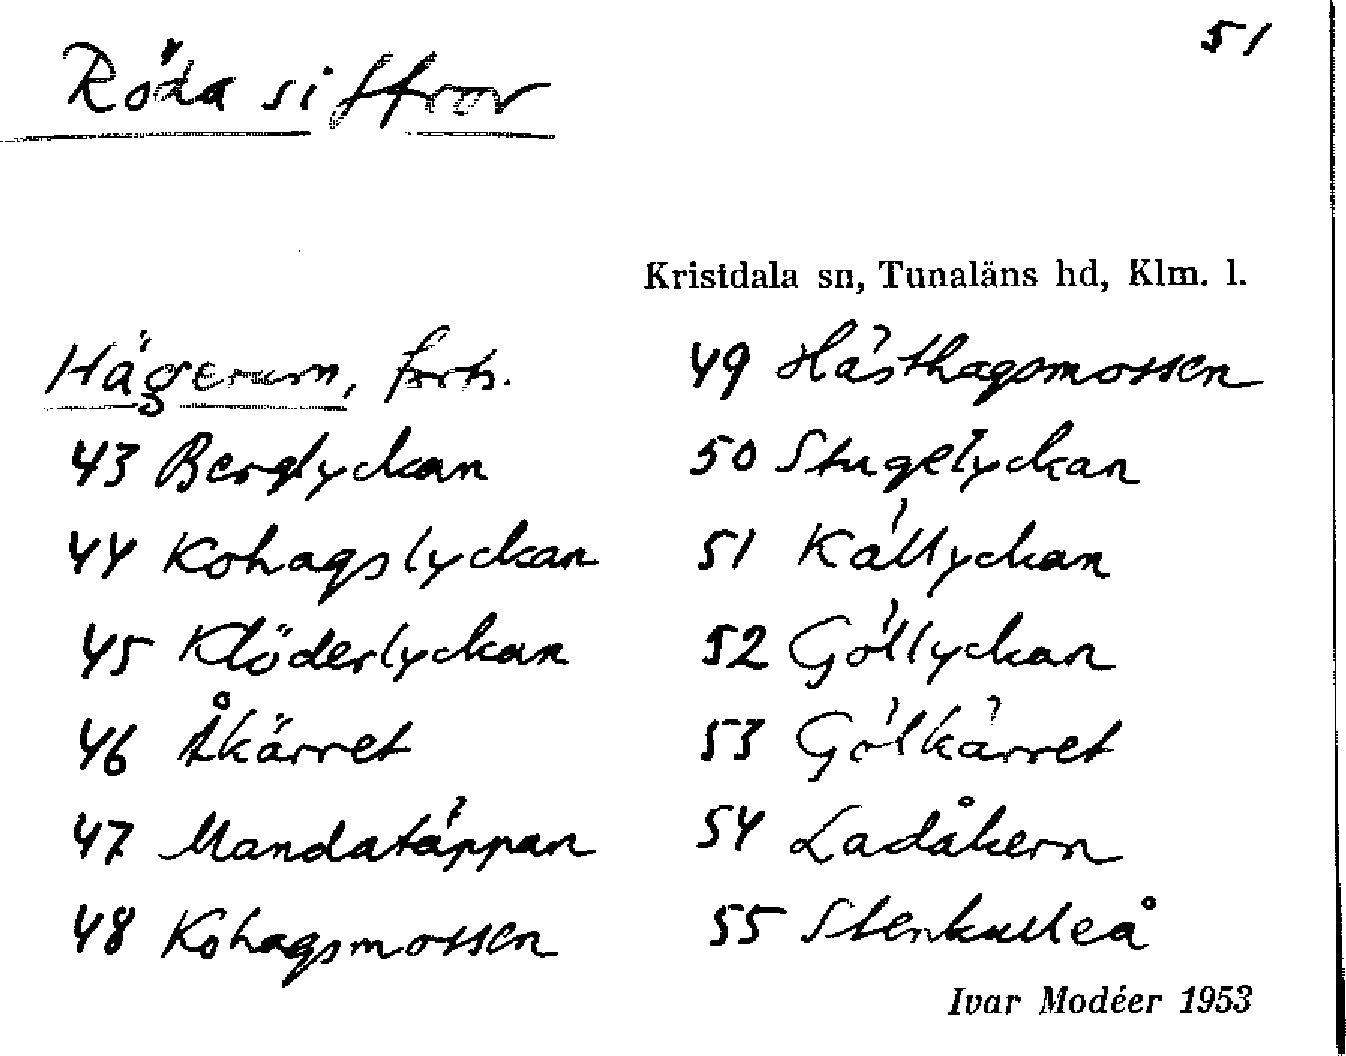 51
Röda siffror
Kristdala sn, Tunaläns hd, Klm. l.
Hägerum, forts.
43 Berglyckan
44 Kohagslyckan
45 Klöderlyckan
46 Åkärret
47 Mandatäppan
48 Kohagsmossen
49 Hästhagsmossen
50 Stugelyckan
51 Källyckan
52 Göllyckan
53 Gölkärret
54 Ladåkern
55 Stenkulleå
Ivar Modéer 1953